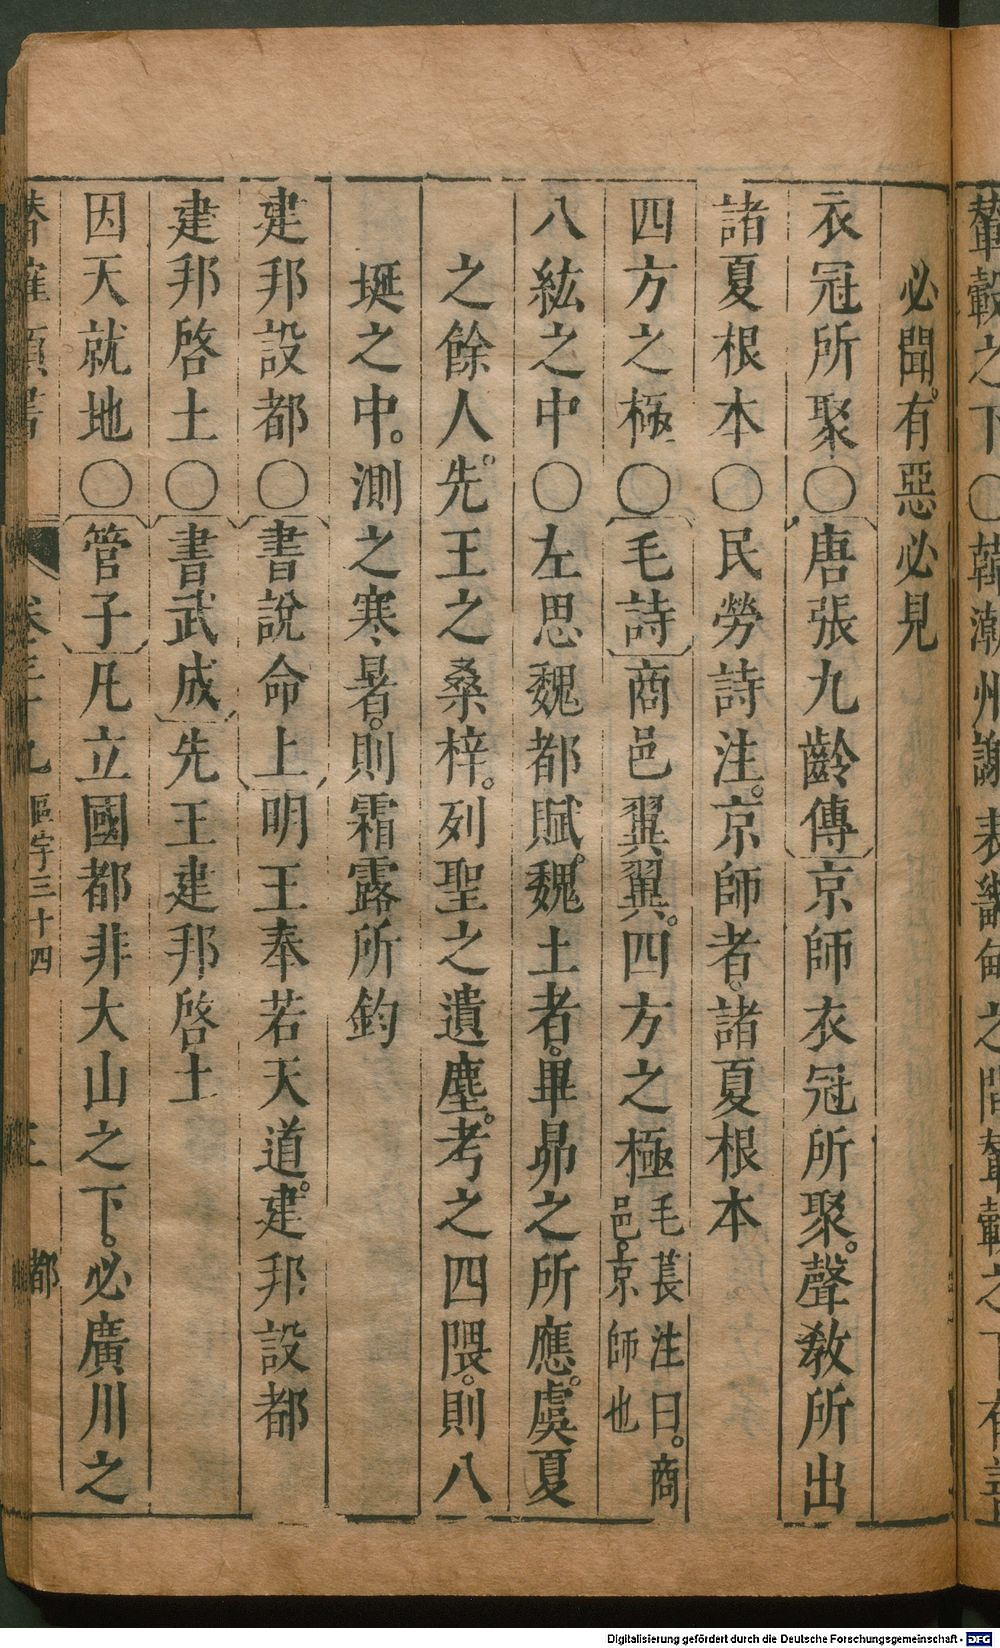 輦轂之下○韓潮州謝表輦轂之下有善
必聞。有惡必見
衣冠所聚○唐張九齡傳京師衣冠所聚。聲敎所出
諸夏根本○民勞詩注。京師者。諸夏根本
四方之極○毛詩商邑翼翼。四方之極毛萇注曰。商邑。京師也
八紘之中○左思魏都賦。魏土者。畢昴之所應。虞夏
之餘人。先王之桑梓。列聖之遺塵。考之四隈。則八
埏之中。測之寒暑。則霜露所鈞
建邦設都○書說命上明王奉若天道。建邦設都
建邦啓土○書武成先王建邦啓土
因天就地○管子凡立國都非大山之下。必廣川之
卷三十九 區宇三十四 三 都
Digitalisierung gefördert durch die Deutsche Forschungsgemeinschaft - DFG